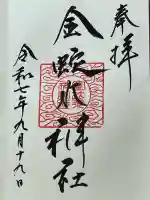 奉拝
金蛇水神社
令和七年九月十九日